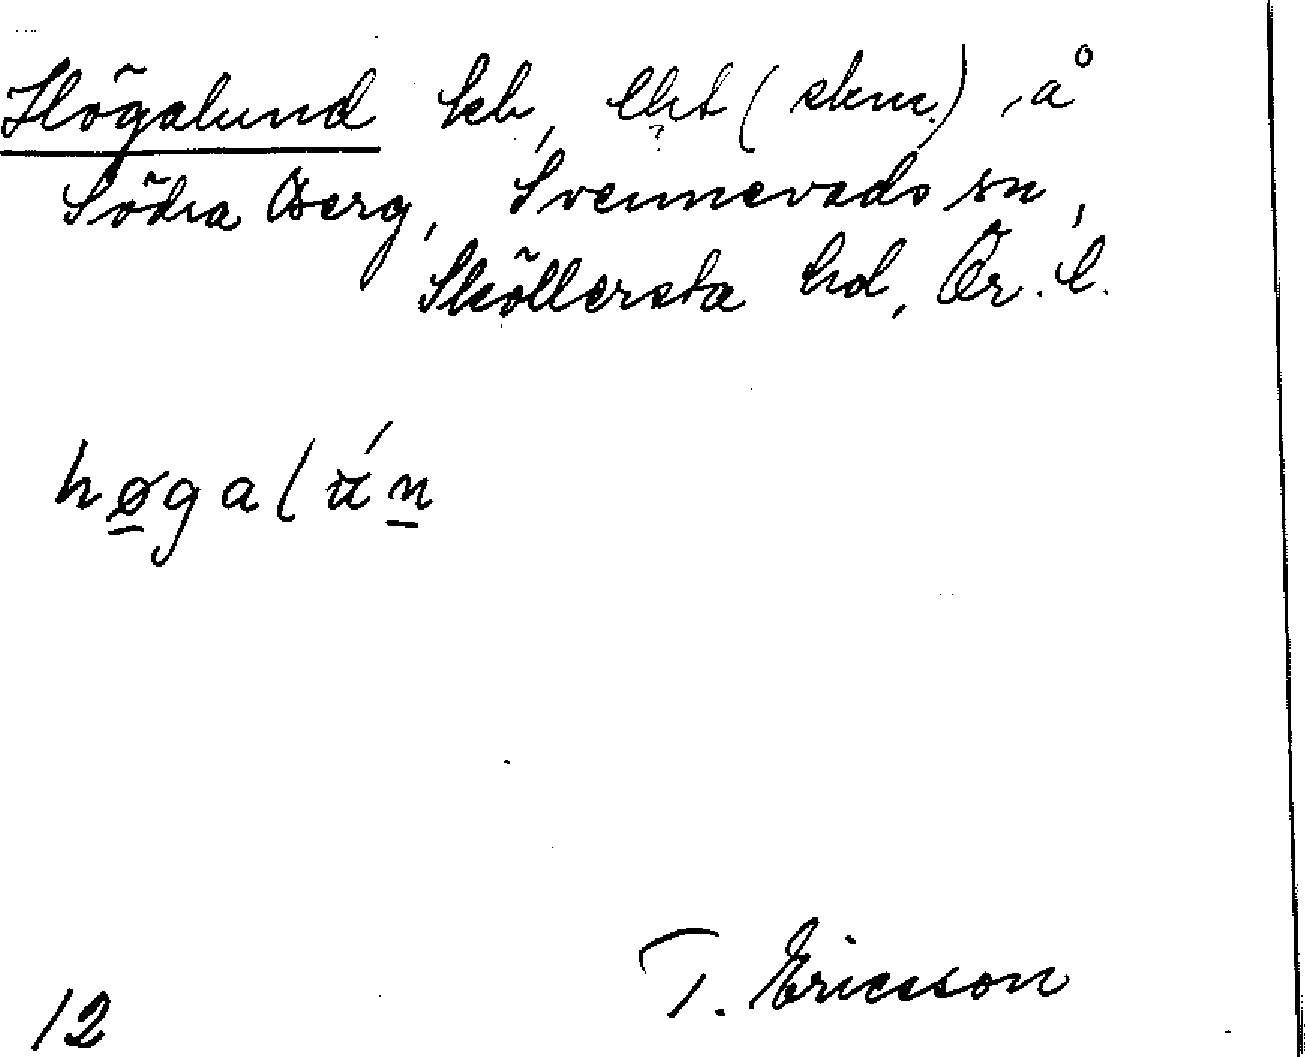 Högalund leb, lht (skm.) å
Södra Berg, Svennevads sn,
Sköllersta hd, Ör. l.
høgalún
T. Ericsson
12